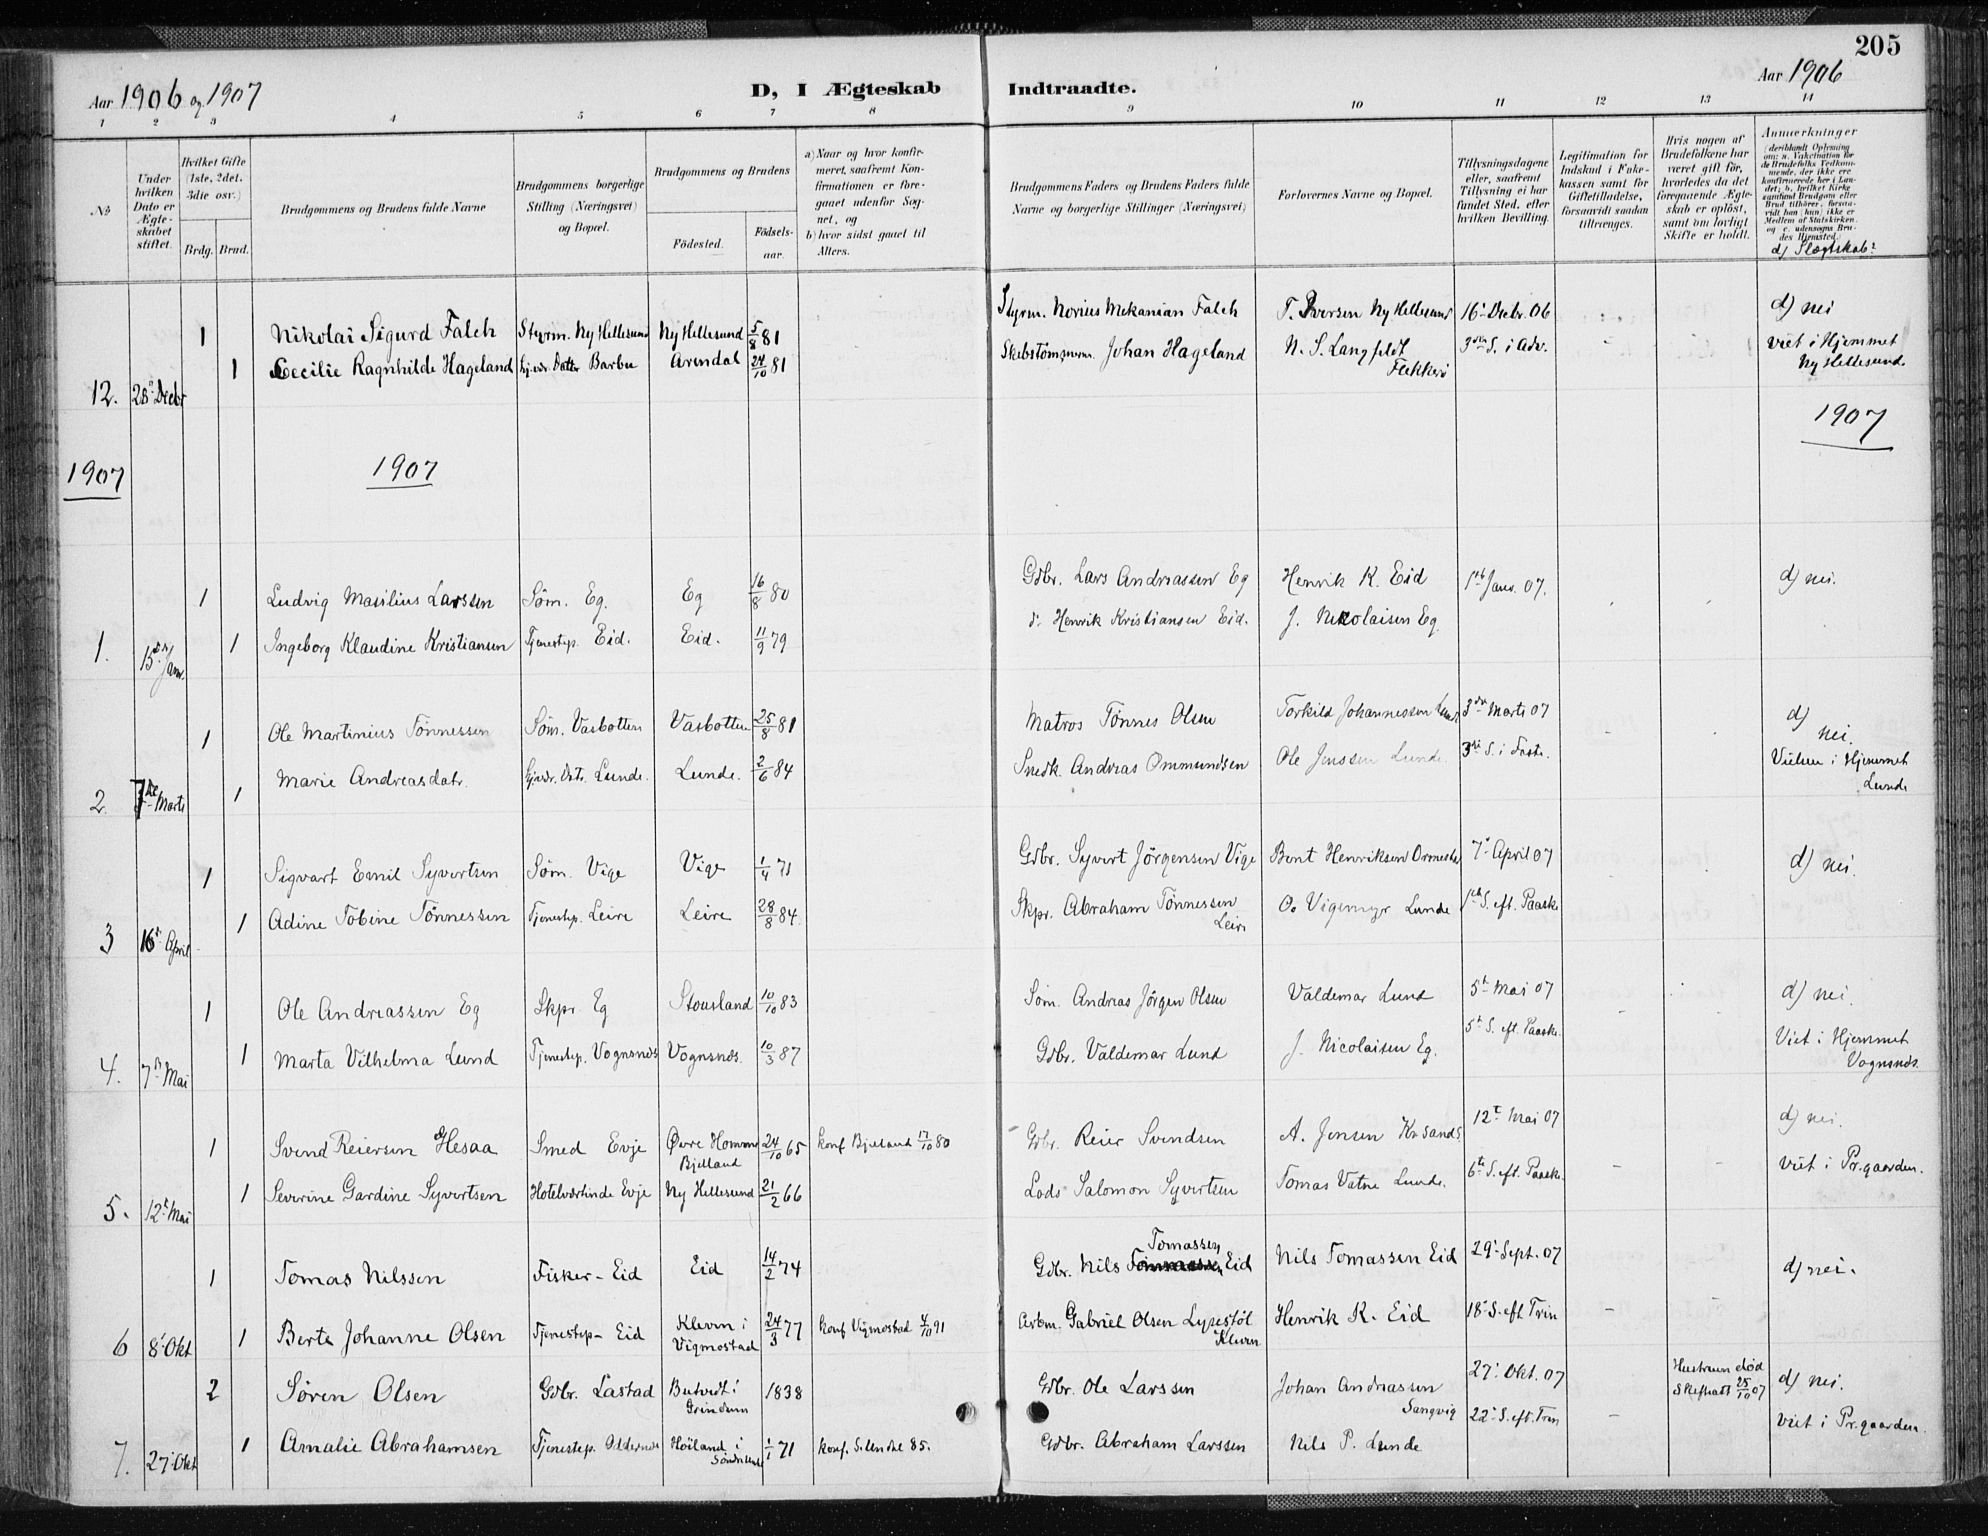 205
Aar 1906 og 1907
D, I Ægteskab Indtraadte.
Aar 1906
1 2 3 4 5 6 7 8 9 10 11 12 13 14
No
Under hvilken Dato er Ægteskabet stiftet.
Hvilket Gifte (1ste, 2det, 3die osv.)
Brdg. Brud.
Brudgommens og Brudens fulde Navne
Brudgommens borgerlige Stilling (Næringsvei) og Bopæl.
Brudgommens og Brudens
Fødested. Fødsels-aar.
a) Naar og hvor konfirmeret, saafremt Konfirmationen er foregaaet udenfor Sognet, og
b) hvor sidst gaaet til Alters.
Brudgommens Faders og Brudens Faders fulde Navne og borgerlige Stillinger (Næringsvei)
Forlovernes Navne og Bopæl.
Tillysningsdagene eller, saafremt Tillysning ei har fundet Sted, efter hvilken Bevilling.
Legitimation for Indskud i Enkekassen samt for Giftetilladelse, forsaavidt saadan tiltrænges.
Hvis nogen af Brudefolkene har været gift før, hvorledes da det foregaaende Ægteskab er opløst, samt om lovligt Skifte er holdt.
Anmærkninger
(deriblandt Oplysning om: a. Vakcination for de Brudefolks Vedkommende, der ikke ere konfirmerede her i Landet; b. hvilket Kirkesamfund Brudgom eller Brud tilhører, forsaavidt han (hun) ikke er Medlem af Statskirken, og c. udensogns Brudes Hjemsted.)
d) Slægtskab?
1 Nikolai Sigurd Falch Styrm. Ny Hellesund Ny Hellesund 5/8 81 Styrm. Novius Mekanian Falch T. Iversen Ny Hellesund 16' Decbr. 06 d) nei
1 Cecilie Ragnhilde Hageland Gjevr. Datter Barbu Arendal 24/10 81 Skibstømmerm. Johan Hageland N. S. Langfeldt Flekkerø 3die S. i Adv. Viet i Hjemmet Ny Hellesund.
12. 28' Decbr
1907 1907 1907
1 Ludvig Masilius Larssen Søm. Eg. Eg 16/8 80 Gdbr. Lars Andreassen Eg Henrik K. Eid 1ste Janv. 07. d) nei.
1 Ingeborg Klaudine Kristiansen Tjenestep. Eid. Eid. 11/9 79 d: Henrik Kristiansen Eid. J. Nikolaisen Eg.
1. 15de Janv.
1 Ole Martinius Tønnessen Søm. Vasbotten Vasbotten 25/8 81 Matros Tønnes Olsen Torkild Johannessen Lunde 3die Marts 07 d) nei.
1 Marie Andreasdatr. Gjevr. Datr. Lunde. Lunde. 2/6 84 Snedk. Andreas Ommundsen Ole Jenssen Lunde. 3die S. i Faste. Vielsen i Hjemmet Lunde
2. 7de Marts
1 Sigvart Emil Syvertsen Søm. Vige Vige 1/4 71 Gdbr. Syvert Jörgensen Vige Bent Henriksen 7' April 07 d) nei.
1 Adine Tobine Tönnessen Tjenestep. Leire Leire 28/8 84. Skpr. Abraham Tönnessen Leire O. Vigemyr Lunde 1ste S. eft. Paaske
3 16' April
1 Ole Andreassen Eg Skpr Eg Stousland 10/10 83 Søm. Andreas Jörgen Olsen Valdemar Lund 5t Mai 07 d) nei.
1 Marta Vilhelma Lund Tjenestep. Vognsnes Vognsnes. 10/3 87 Gdbr. Valdemar Lund J. Nicolaisen Eg. 5t S. eft. Paaske. Viet i Hjemmet Vognsnes.
4. 7de Mai
1 Svend Reiersen Hesaa Smed Evje Øvre Homme Bjelland 24/10 65 Konf Bjelland 17/10 80 Gdbr. Reier Svendsen A. Jensen Kr.sand S 12te Mai 07 d) nei.
1 Severine Gardine Syvertsen Hotelværtinde Evje Ny Hellesund 21/2 66 Lods Salomon Syvertsen Tomas Vatne Lunde. 6te S. eft. Paaske. Viet i Pr.gaarden.
5. 12t Mai
1 Tomas Nilssen Fisker - Eid Eid 14/2 74 Gdbr. Nils Tomassen Eid Nils Tomassen Eid 29' Sept. 07 d) nei.
1 Berte Johanne Olsen Tjenestep - Eid Kleven i Vigmostad 24/3 77 Konf Vigmostad 4/10 91 Arbm. Gabriel Olsen Lyrestöl Kleven Henrik K. Eid 18' S. eft Trin
6 8' Okt
2 Sören Olsen Gdbr. Lastad Butvedt i Grindum 1838 Gdbr. Ole Larssen Johan Andreassen Sangvig 27' Okt. 07 Hustruen død Skifteatt 25/10 07 d) nei.
1 Amalie Abrahamsen Tjenestep. Oddernes Höiland i Söndeled 1/1 71 konf. S.Undal 85. Gdbr. Abraham Larssen Nils P. Lunde 22' S. eft. Trin Viet i Pr.gaarden.
7. 27' Okt